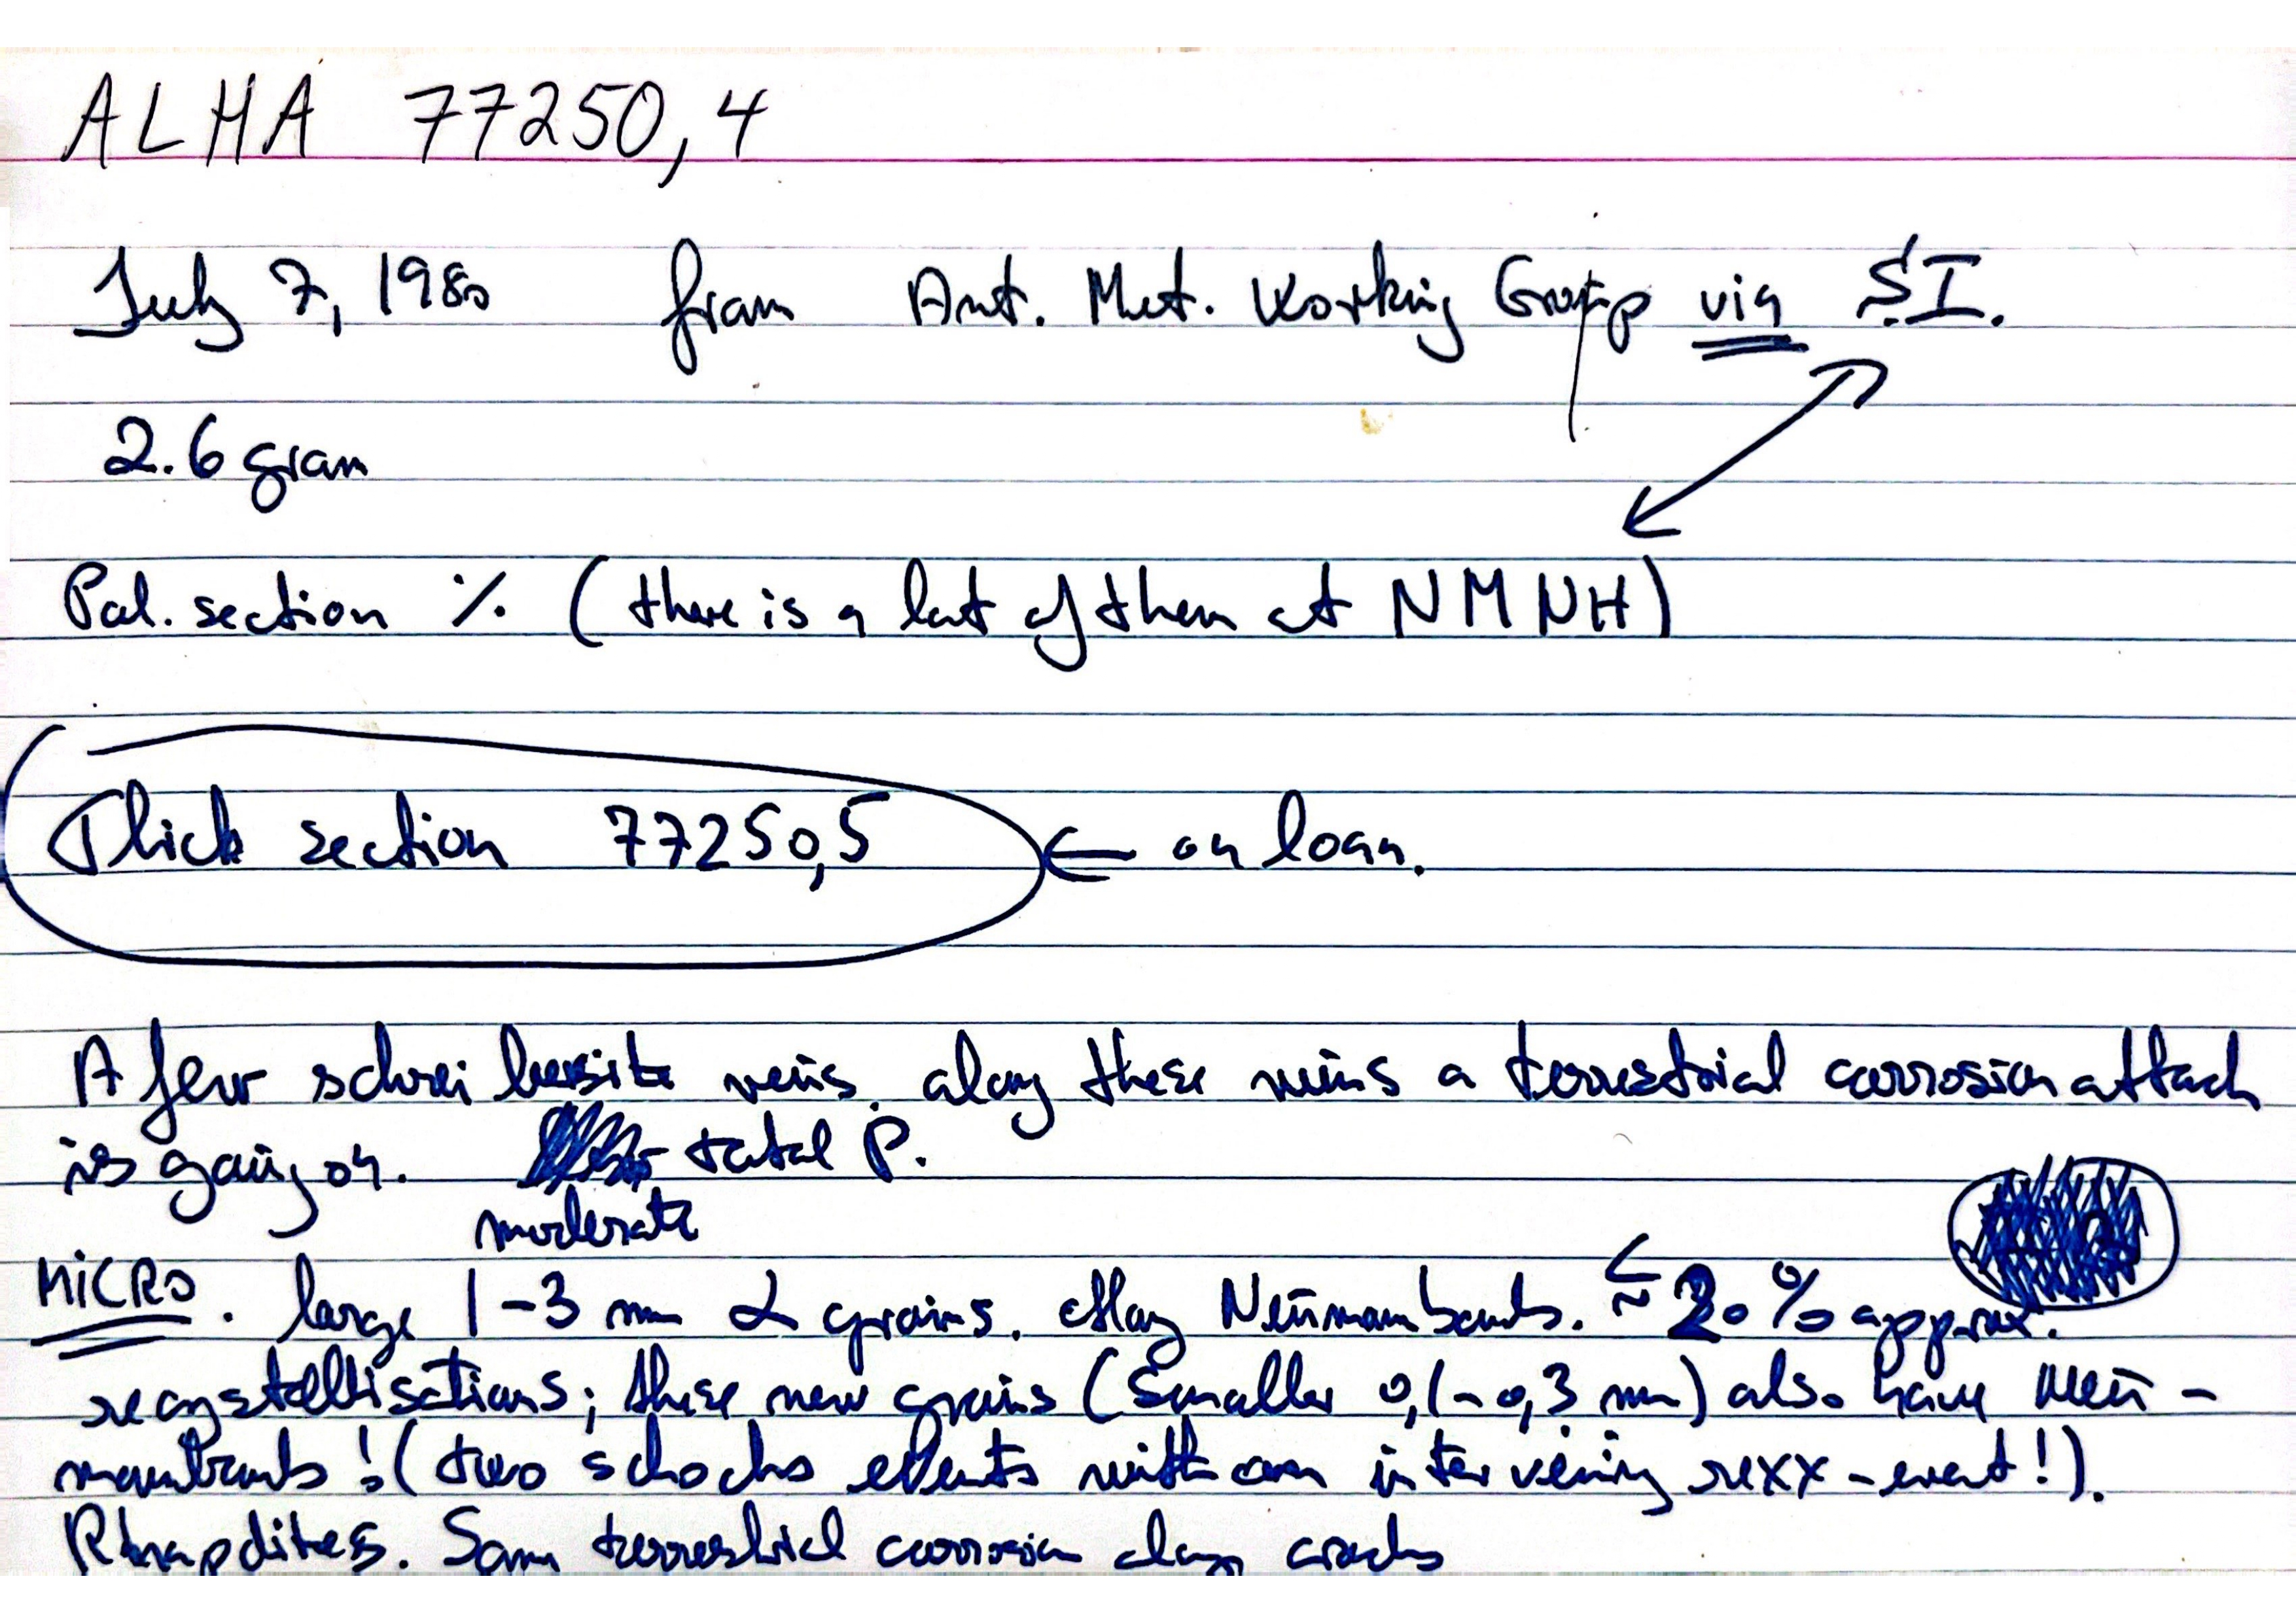 ALHA 77250,4
July 7, 1980 from Ant. Met. Working Group via S.I.
2.6 gram
Pol. section ./. (there is a lot of them at NMNH)
Thick section 77250,5 ← on loan.
A few schreibersite veins. along these veins a terrestrial corrosion attack
is going on. total P.
moderate
MiCRO. large 1-3 mm α grains. Many Neümannbands. ≲ 20% approx.
recrystallisations; these new grains (smaller 0,1-0,3 mm) also have Neü-
mannbands! (two schocks events with an intervening rexx-event!).
Rhapdites. Some terrestrial corrosion along cracks